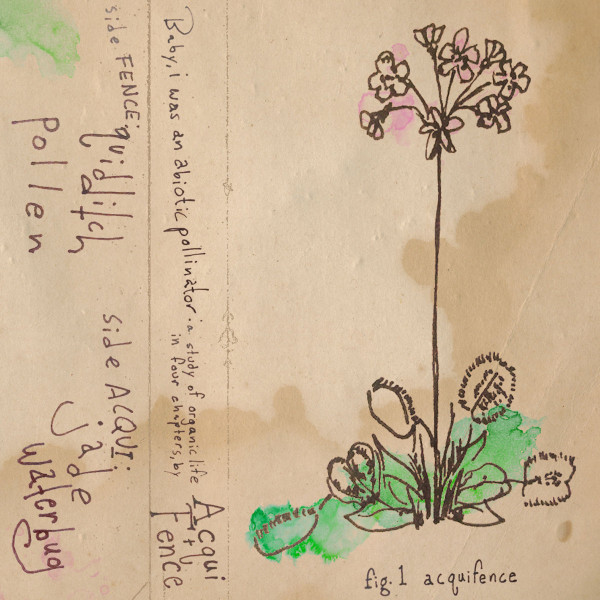 fig. 1 acquifence
Baby, i was an abiotic pollinator: a study of organic life
in four chapters, by
Acqui
+
Fence
side FENCE:
quidditch
pollen
side ACQUI:
jade
waterbug